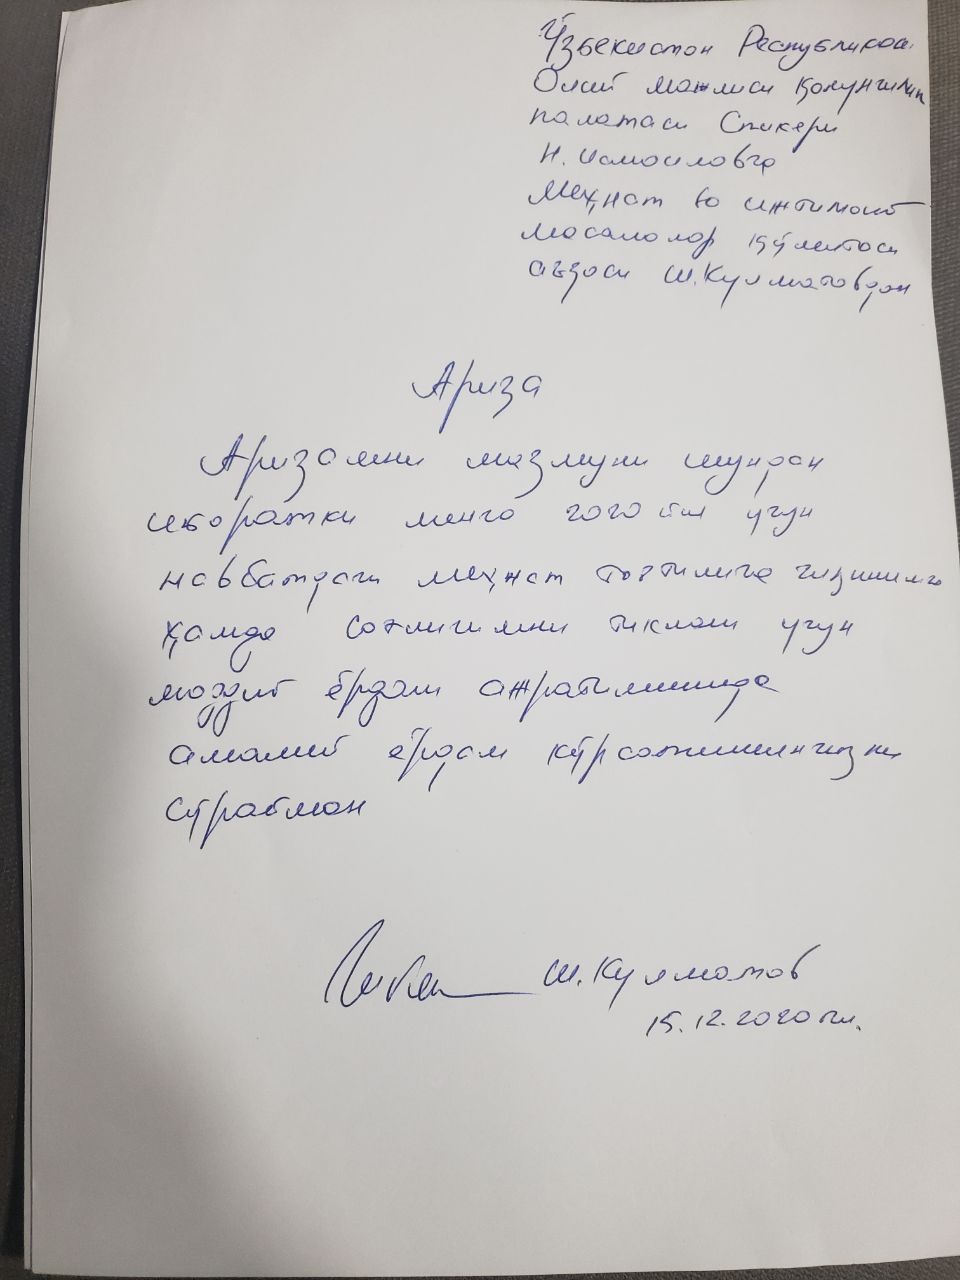 Ўзбекистон Республикаси
Олий мажлиси Қонунчилик
палатаси Спикери
Н. Исмоиловга
Меҳнат ва ижтимоий
масалалар қўмитаси
аъзоси Ш.Кулматовдан
Ариза
Аризамни мазмуни шундан
иборатки менга 2020 йил учун
навбатдаги меҳнат таътилига чиқишимга
ҳамда соғлиғимни тиклаш учун
моддий ёрдам ажратилишида
амалий ёрдам кўрсатишингизни
сўрайман
Ш.Кулматов
15.12.2020 йил.